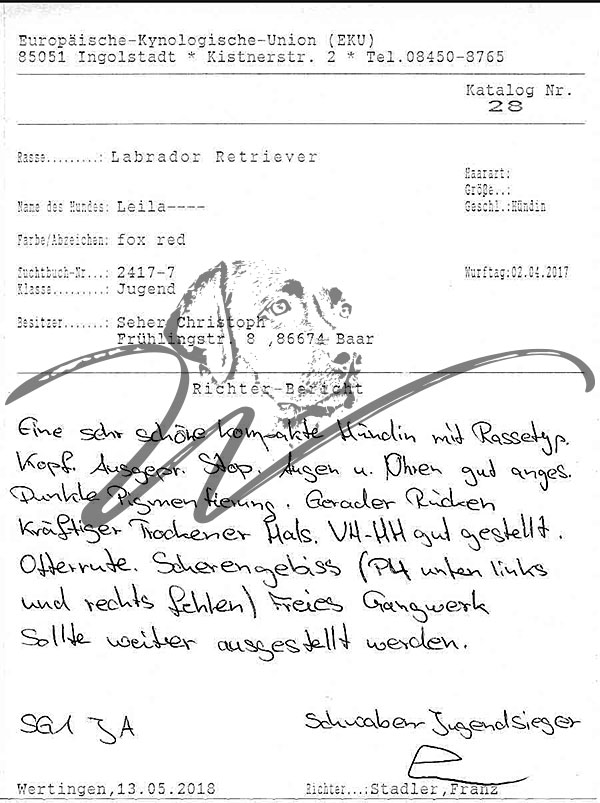 Europäische-Kynologische-Union (EKU)
85051 Ingolstadt * Kistnerstr. 2 * Tel.08450-8765
Katalog Nr.
28
Rasse.........: Labrador Retriever
Haarart:
Größe..:
Name des Hundes: Leila----
Geschl.:Hündin
Farbe/Abzeichen: fox red
Zuchtbuch-Nr...: 2417-7
Wurftag:02.04.2017
Klasse.........: Jugend
Besitzer.......: Seher Christoph
Frühlingstr. 8 ,86674 Baar
Richter-Bericht
Eine sehr schöne kompakte Hündin mit Rassetyp.
Kopf. Ausgepr. Stop. Augen u. Ohren gut anges.
Dunkle Pigmentierung. Gerader Rücken
Kräftiger Trockener Hals. VH-HH gut gestellt.
Otterrute. Scherengebiss (P4 unten links
und rechts fehlen) Freies Gangwerk
Sollte weiter ausgestellt werden.
SG1 JA
Schwaben Jugendsieger
Wertingen,13.05.2018
Richter...:Stadler,Franz